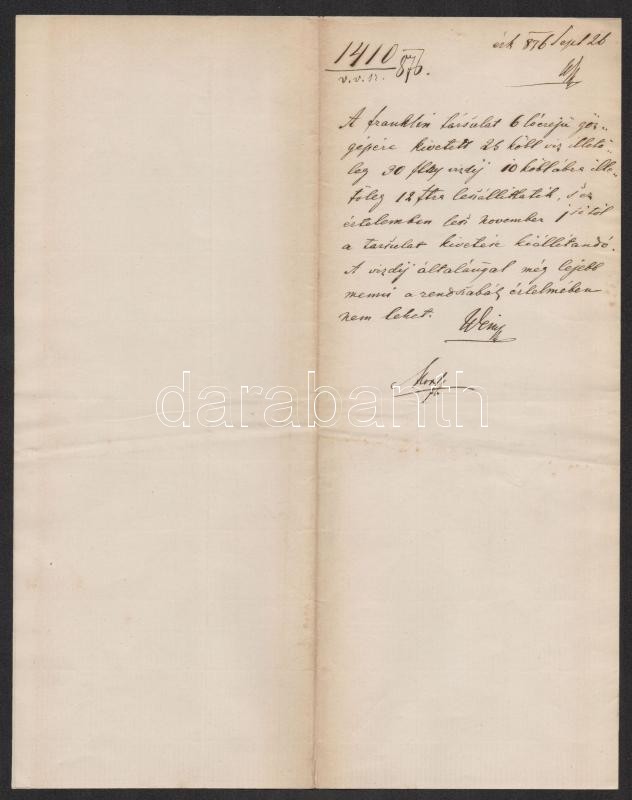 érk 876 Sept 26
1410/876.
v.v.ir.
A franklin társulat 6 lóerejü göz-
gépére kivetett 25 köbl viz illető-
leg 30 vizdij 10 köblábra ille-
tőleg 12 ftra leszállittatik, s ez
értelemben lesz november 1 sőtől
a társulat kivetése kiállitandó.
A vizdij általánygal még lejebb
menni a rendszabály értelmében
nem lehet. Wein
darabanth